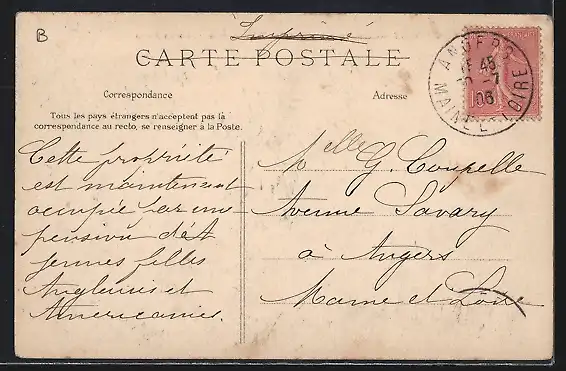 B
Imprimé
CARTE POSTALE
Correspondance
Adresse
Tous les pays étrangers n'acceptent pas la
correspondance au recto, se renseigner à la Poste.
ANGERS
45
7
06
MAINE ET LOIRE
Cette propriété
est maintenant
occupée par une
pension d'été
jeunes filles
Anglaises et
Américaines.
Melle G. Coupelle
Avenue Savary
à Angers
Maine et Loire